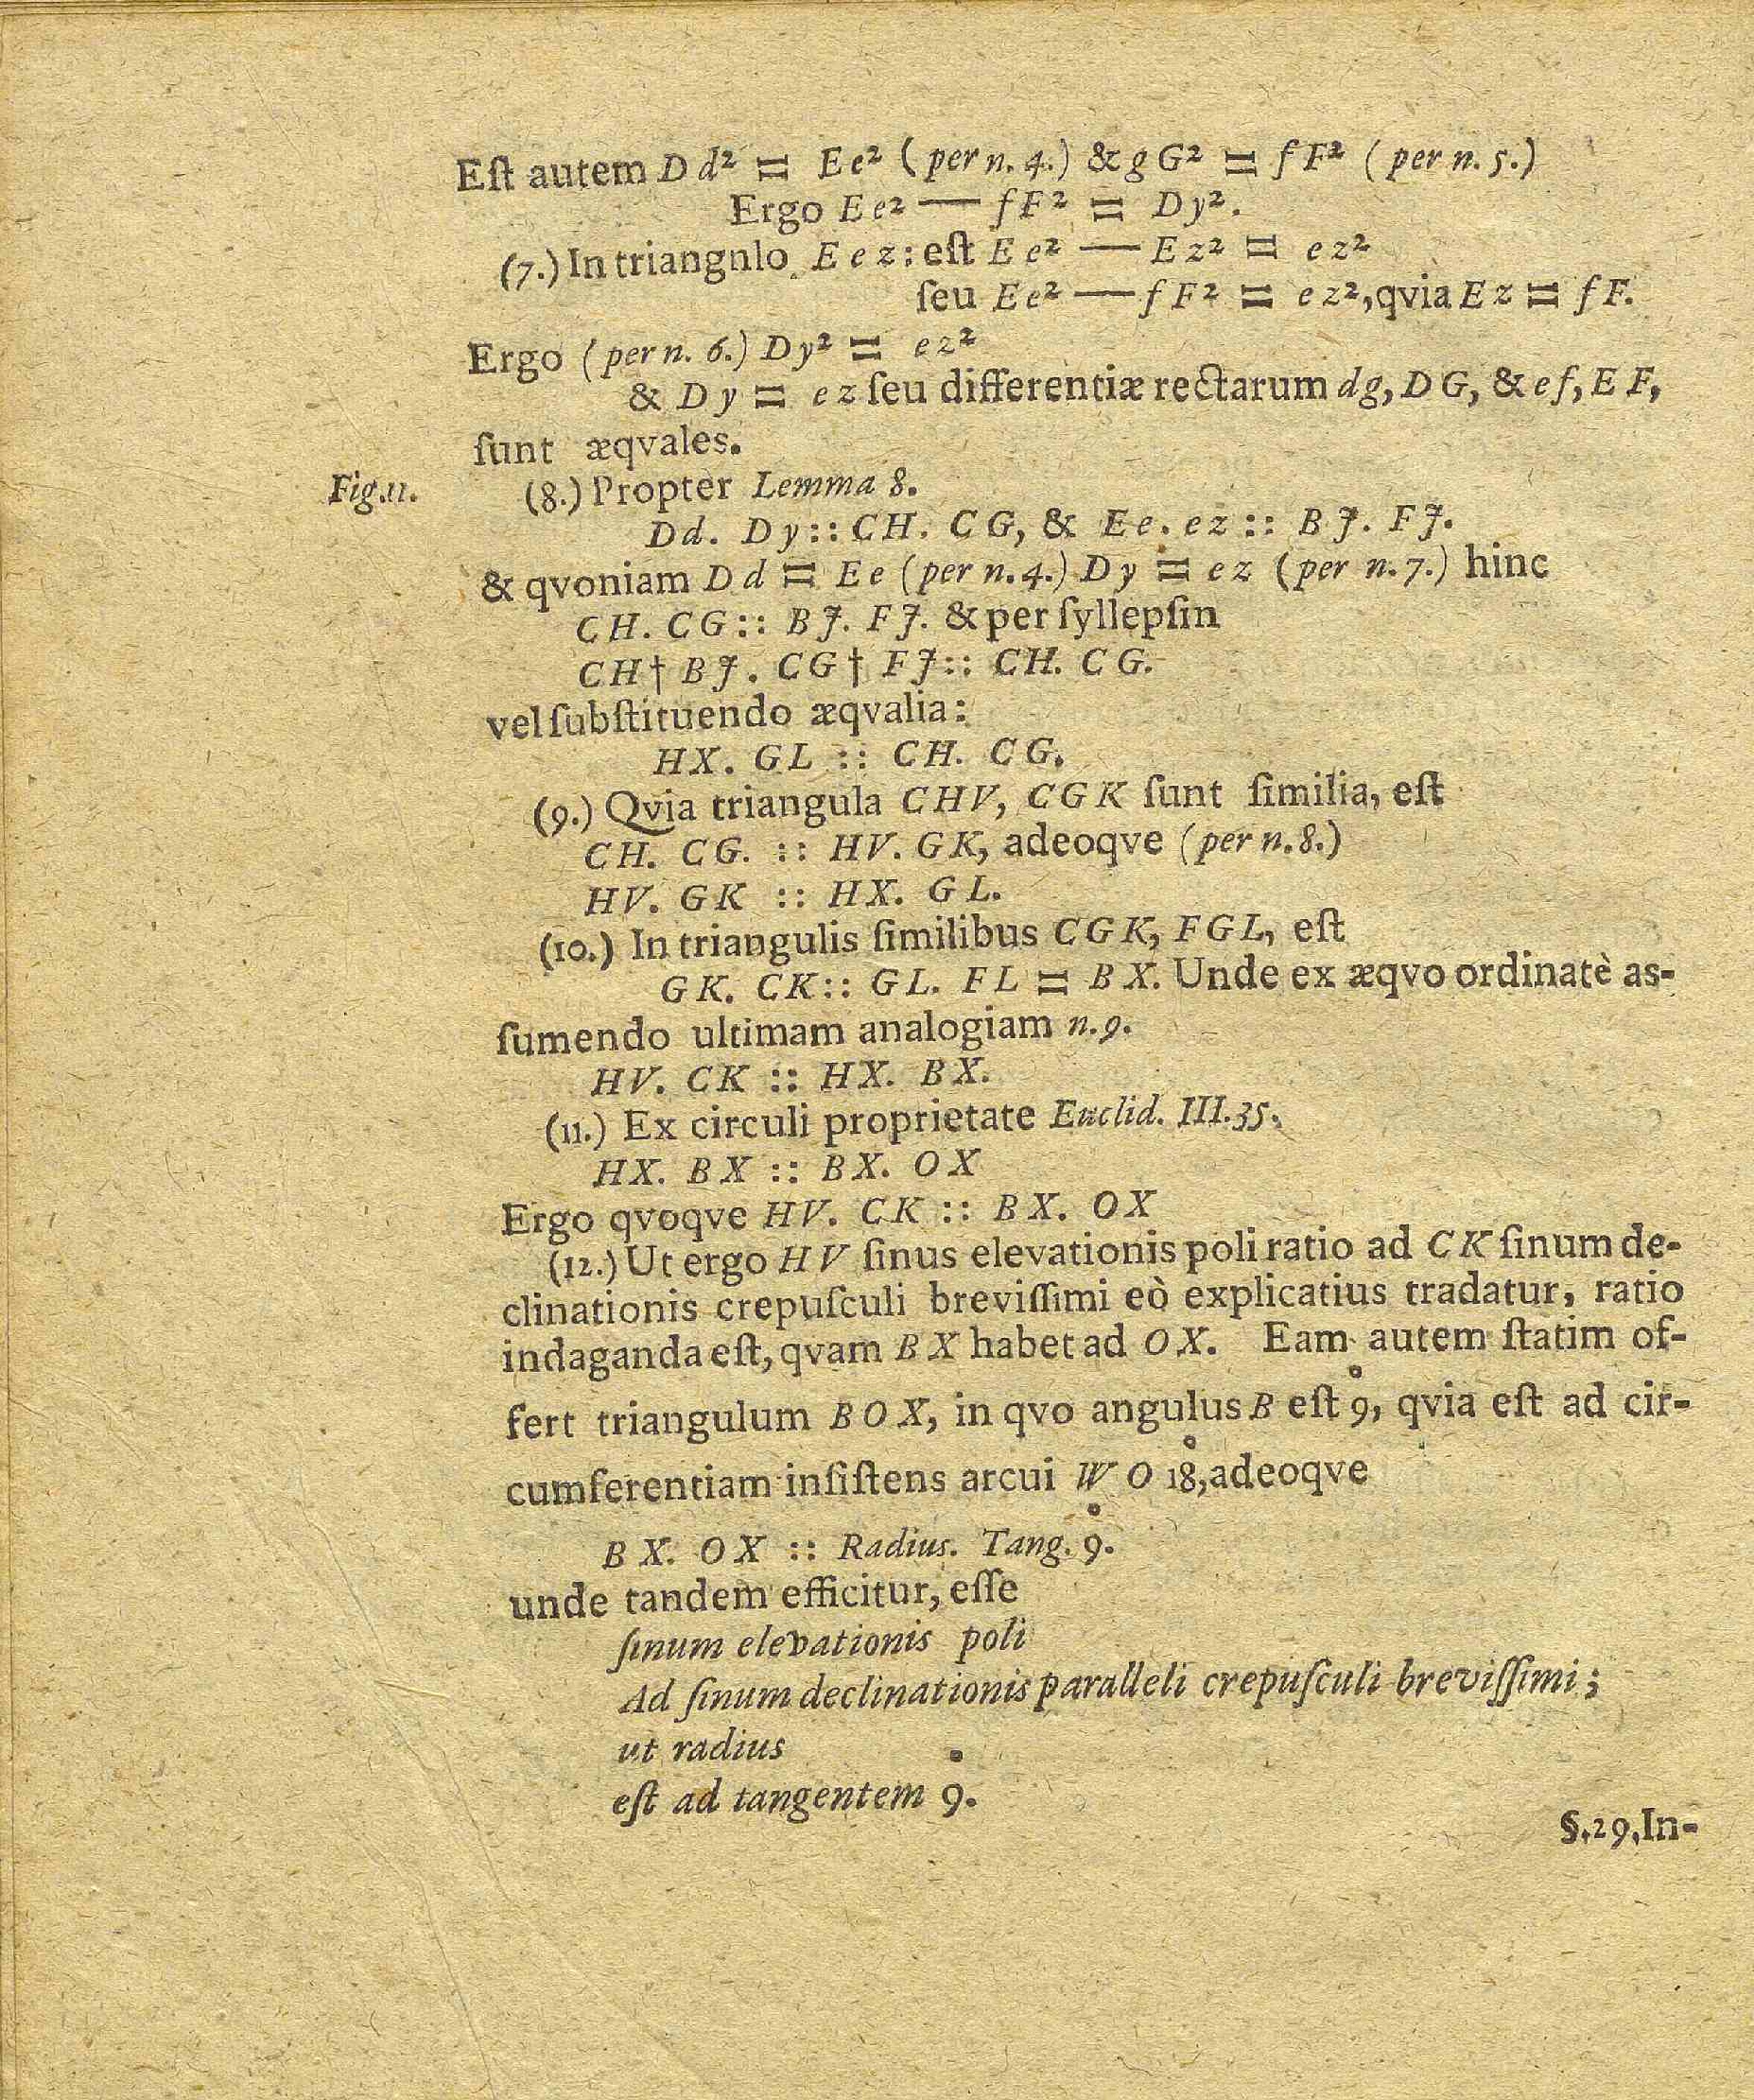 Eſt autem D d² = Ee² (per n. 4.) & g G² = f F² (per n. 5.)
Ergo Ee² — fF² = Dy².
(7.) In triangnlo E e z: eſt E e² — E z² = ez²
ſeu Ee² — f F² = ez², qvia E z = f F.
Ergo (per n. 6.) Dy² = ez²
& D y = ez ſeu differentiæ rectarum dg, D G, & ef, E F,
ſunt æqvales.
Fig. 11. (8.) Propter Lemma 8.
Dd. Dy :: CH. CG, & Ee. ez :: B J. F J.
& qvoniam D d = Ee (per n. 4.) D y = ez (per n. 7.) hinc
CH. CG :: B J. F J. & per ſyllepſin
CH † B J. CG † F J :: CH. CG.
vel ſubſtituendo æqvalia:
HX. GL :: CH. CG.
(9.) Qvia triangula CHV, CGK ſunt ſimilia, eſt
CH. CG. :: HV. GK, adeoqve (per n. 8.)
HV. GK :: HX. GL.
(10.) In triangulis ſimilibus CGK, FGL, eſt
GK. CK :: GL. FL = BX. Unde ex æqvo ordinatè as-
ſumendo ultimam analogiam n. 9.
HV. CK :: HX. BX.
(11.) Ex circuli proprietate Euclid. III. 35.
HX. BX :: BX. OX
Ergo qvoqve HV. CK :: BX. OX
(12.) Ut ergo HV ſinus elevationis poli ratio ad CK ſinum de-
clinationis crepuſculi breviſſimi eò explicatius tradatur, ratio
indaganda eſt, qvam BX habet ad OX. Eam autem ſtatim of-
fert triangulum BOX, in qvo angulus B eſt 9̊, qvia eſt ad cir-
cumferentiam inſiſtens arcui W O 1̊8, adeoqve
BX. OX :: Radius. Tang. 9̊.
unde tandem efficitur, eſſe
ſinum elevationis poli
Ad ſinum declinationis paralleli crepuſculi breviſſimi;
ut radius
eſt ad tangentem 9̊.
§. 29. In-